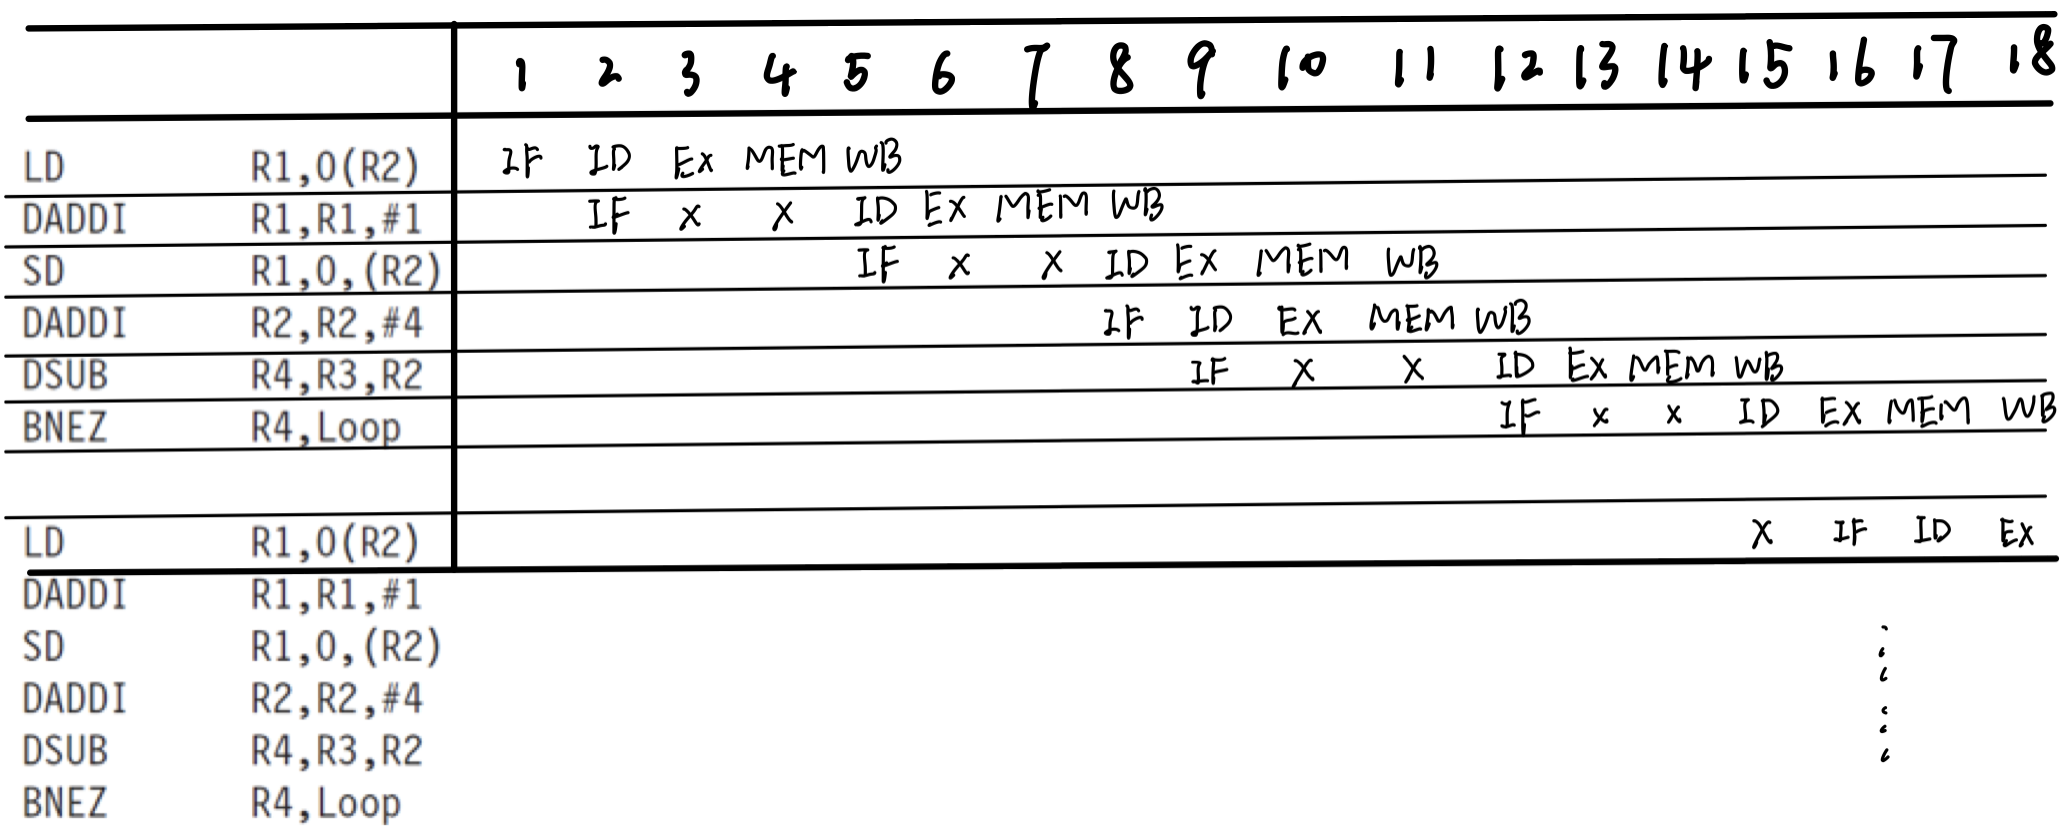 1 2 3 4 5 6 7 8 9 10 11 12 13 14 15 16 17 18
LD R1,0(R2) IF ID EX MEM WB
DADDI R1,R1,#1 IF X X ID EX MEM WB
SD R1,0,(R2) IF X X ID EX MEM WB
DADDI R2,R2,#4 IF ID EX MEM WB
DSUB R4,R3,R2 IF X X ID EX MEM WB
BNEZ R4,Loop IF X X ID EX MEM WB
LD R1,0(R2) X IF ID EX
DADDI R1,R1,#1
SD R1,0,(R2)
DADDI R2,R2,#4
DSUB R4,R3,R2
BNEZ R4,Loop